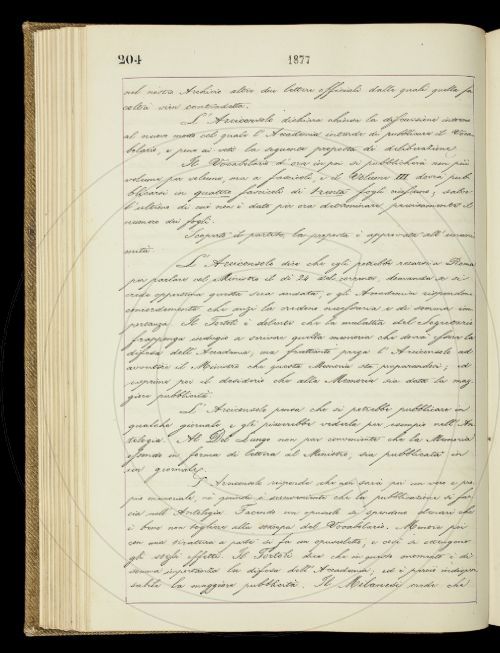 204
1877
nel nostro Archivio altre due lettere officiali dalle quali quella fa
coltà vien contradetta.
L'Arciconsolo dichiara chiusa la discussione intorno
al nuovo modo col quale l'Accademia intende di pubblicare il Voca-
bolario, e pone ai voti la seguente proposta di deliberazione
Il Vocabolario di ora in poi si pubblicherà non più
volume per volume, ma a fascicoli, e il Volume III dovrà pub-
blicarsi in quattro fascicoli di trenta fogli ciascuno, salvo
l'ultimo di cui non è dato per ora determinare precisamente il
numero dei fogli.
Scoperto il partito, la proposta è approvata all'unani
mità.
L'Arciconsolo dice che egli potrebbe recarsi a Roma
per parlare col Ministro il dì 24 del corrente, domanda se si
crede opportuna questa sua andata, e gli Accademici rispondono
concordemente che anzi la credono necessaria e di somma im-
portanza. Il Tortoli è dolente che la malattia del Segretario
frapponga indugio a scrivere quella memoria che deve essere la
difesa dell'Accademia, ma frattanto prega l'Arciconsolo ad
avvertire il Ministro che questa Memoria sta preparandosi; ed
esprime poi il desiderio che alla Memoria sia data la mag-
giore pubblicità.
L'Arciconsolo pensa che si potrebbe pubblicare in
qualche giornale e gli piacerebbe vederla per esempio nell'An
tologia. Al Del Lungo non par conveniente che la Memoria
essendo in forma di lettera al Ministro, sia pubblicata in
un giornale.
L'Arciconsolo risponde che non sarà poi un vero e pro-
prio memoriale, né quindi è sconveniente che la pubblicazione si fac-
cia nell'Antologia. Facendo un opuscolo si spendono denari che
è bene non togliere alla stampa del Vocabolario. Mentre poi
con una tiratura a parte si fa un opuscoletto, e così si ottengono
gli stessi effetti. Il Tortoli dice che in questo momento è di
somma importanza la difesa dell'Accademia, ed è perciò indispen
sabile la maggiore pubblicità. Il Milanesi crede che